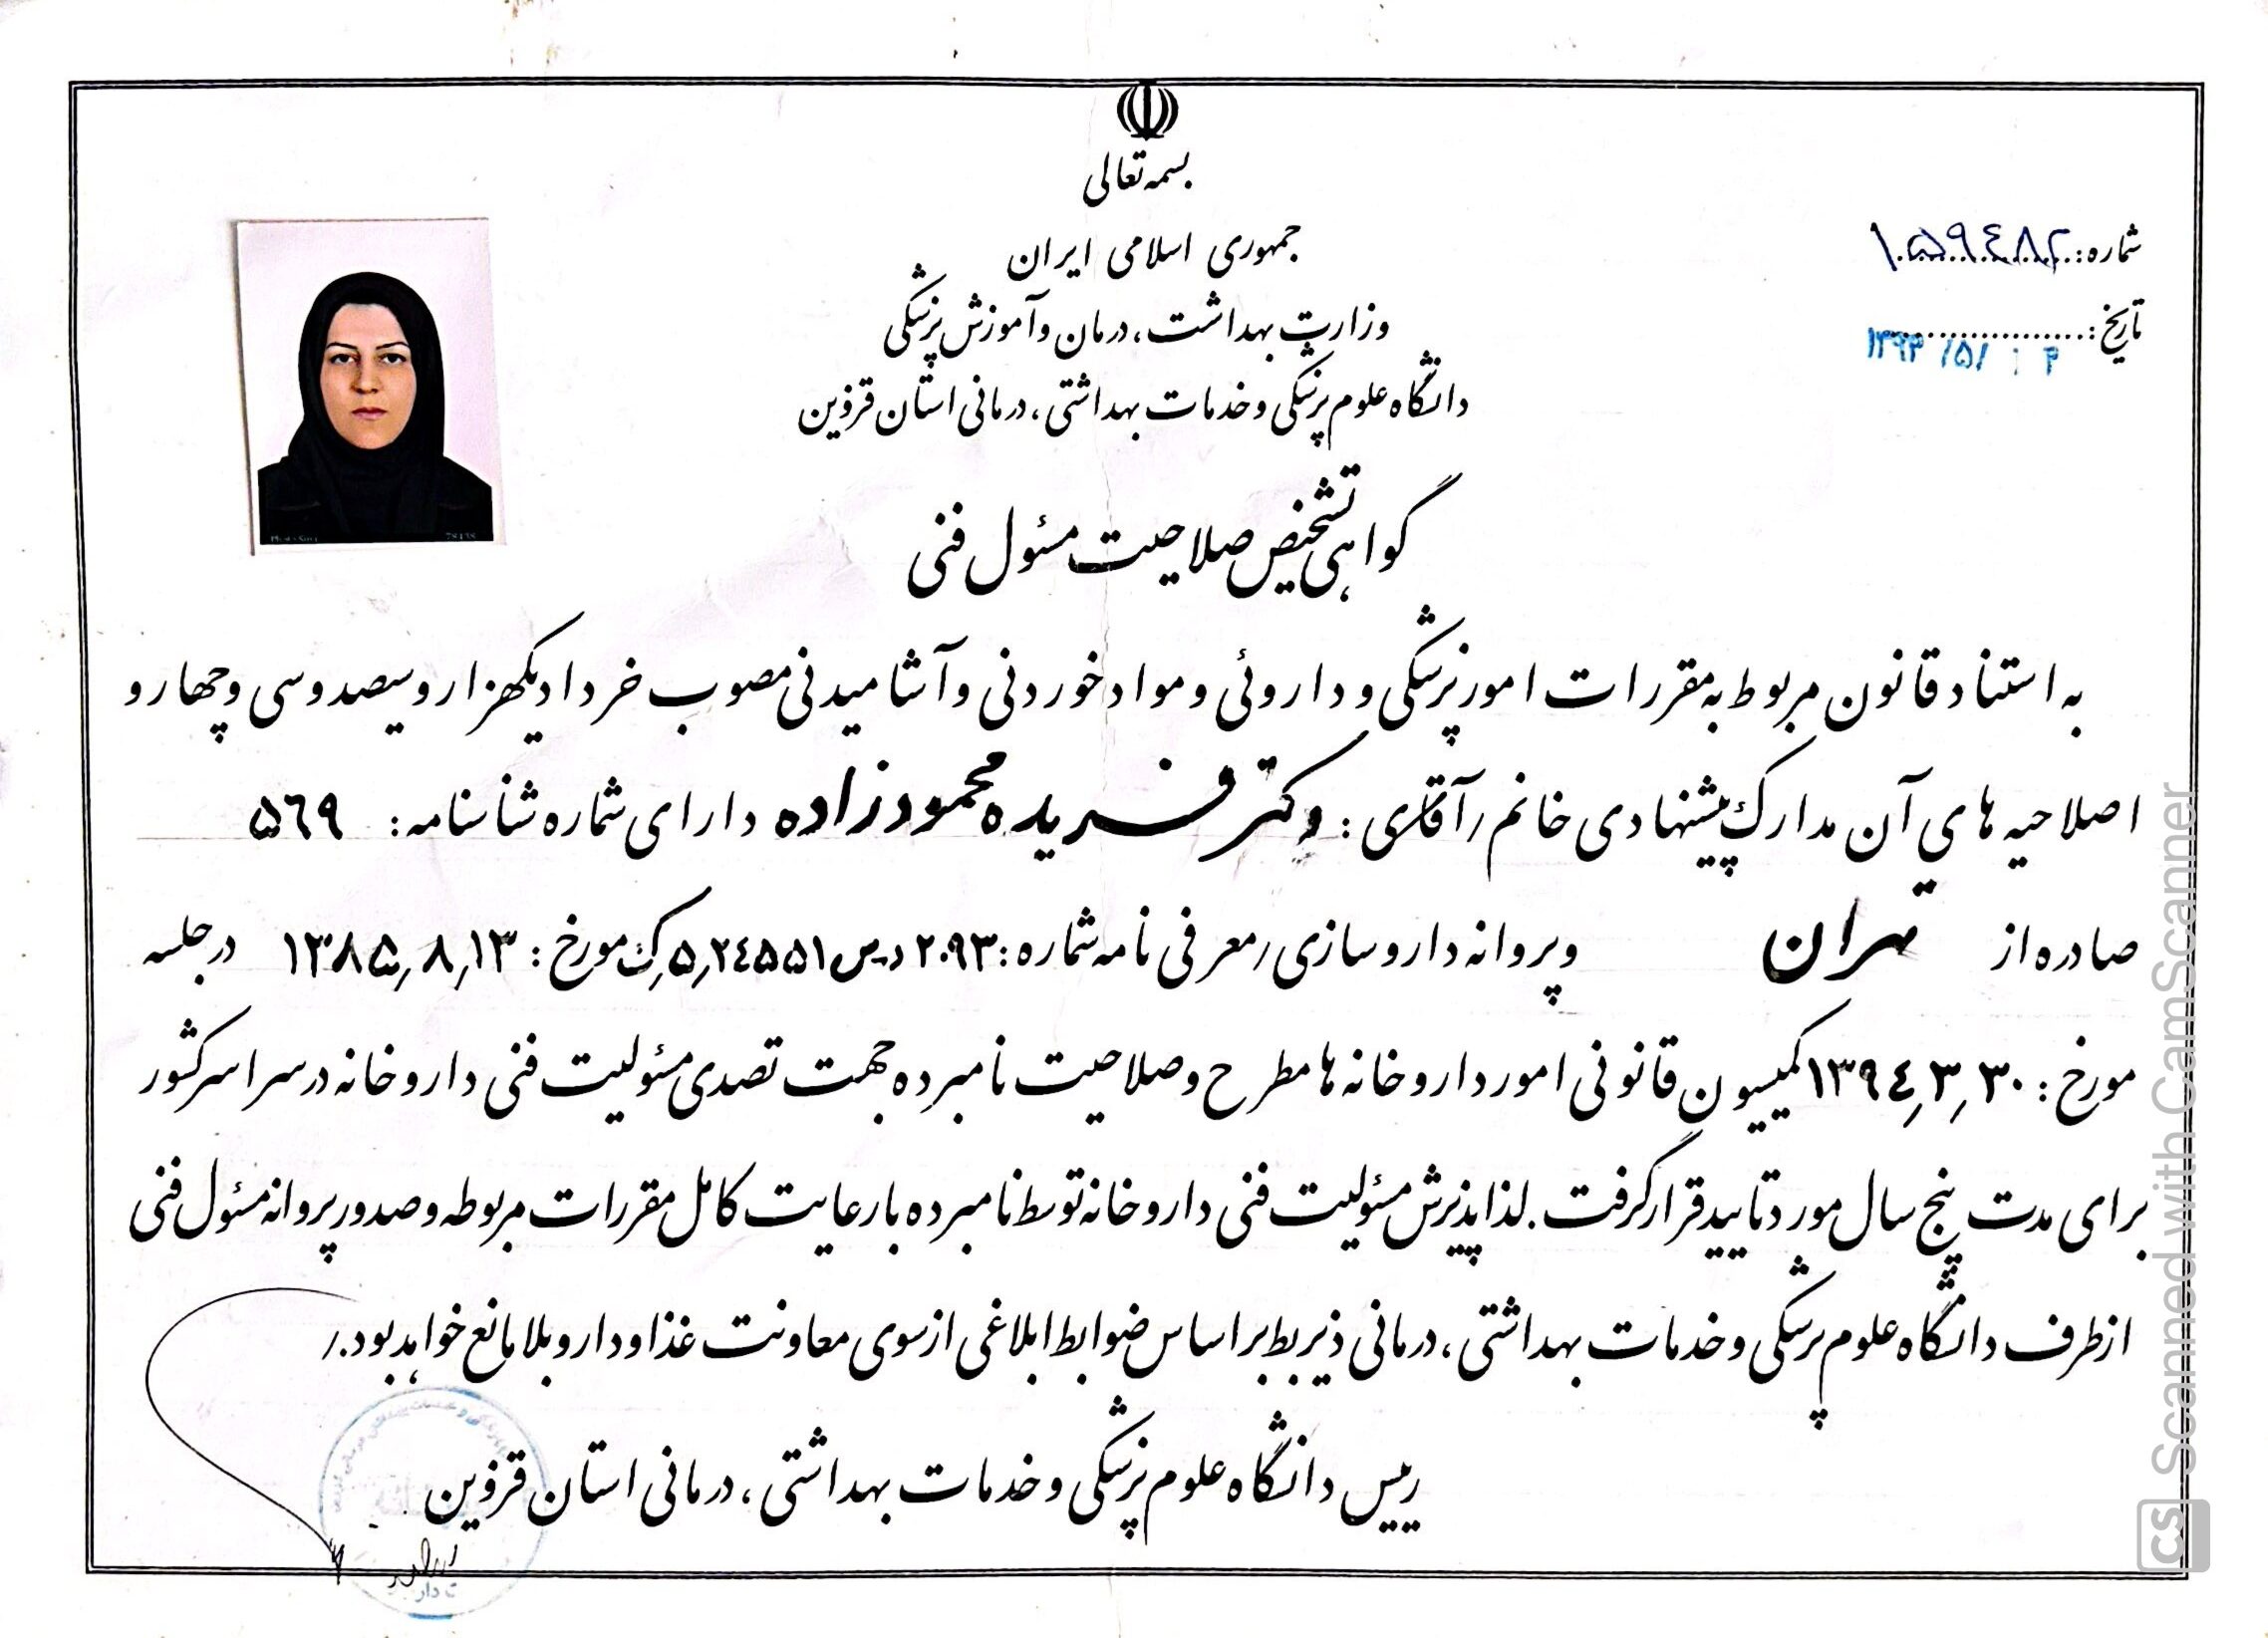 بسمه تعالی
جمهوری اسلامی ایران
وزارت بهداشت، درمان و آموزش پزشکی
دانشگاه علوم پزشکی و خدمات بهداشتی، درمانی استان قزوین
شماره: ۱۰۵۹٤۸۲
تاریخ: ۱۳۹۴ /۵/
گواهی تشخیص صلاحیت مسئول فنی
به استناد قانون مربوط به مقررات امور پزشکی و داروئی و مواد خوردنی و آشامیدنی مصوب خرداد یکهزار و سیصد و سی و چهار و
اصلاحیه های آن مدارک پیشنهادی خانم / آقای: دکتر فریده محمودزاده دارای شماره شناسنامه: ۵٦۹
صادره از تهران و پروانه داروسازی / معرفی نامه شماره: ۲۰۹۳ د.س ۵/۲٤۵۵۱/ک مورخ: ۱۳۸۵/۸/۱۳ در جلسه
مورخ: ۱۳۹٤/۳/۳۰ کمیسیون قانونی امور داروخانه ها مطرح و صلاحیت نامبرده جهت تصدی مسئولیت فنی داروخانه در سراسر کشور
برای مدت پنج سال مورد تایید قرار گرفت. لذا پذیرش مسئولیت فنی داروخانه توسط نامبرده با رعایت کامل مقررات مربوطه و صدور پروانه مسئول فنی
از طرف دانشگاه علوم پزشکی و خدمات بهداشتی، درمانی ذیربط بر اساس ضوابط ابلاغی از سوی معاونت غذا و دارو بلامانع خواهد بود./
رییس دانشگاه علوم پزشکی و خدمات بهداشتی، درمانی استان قزوین
CS Scanned with CamScanner